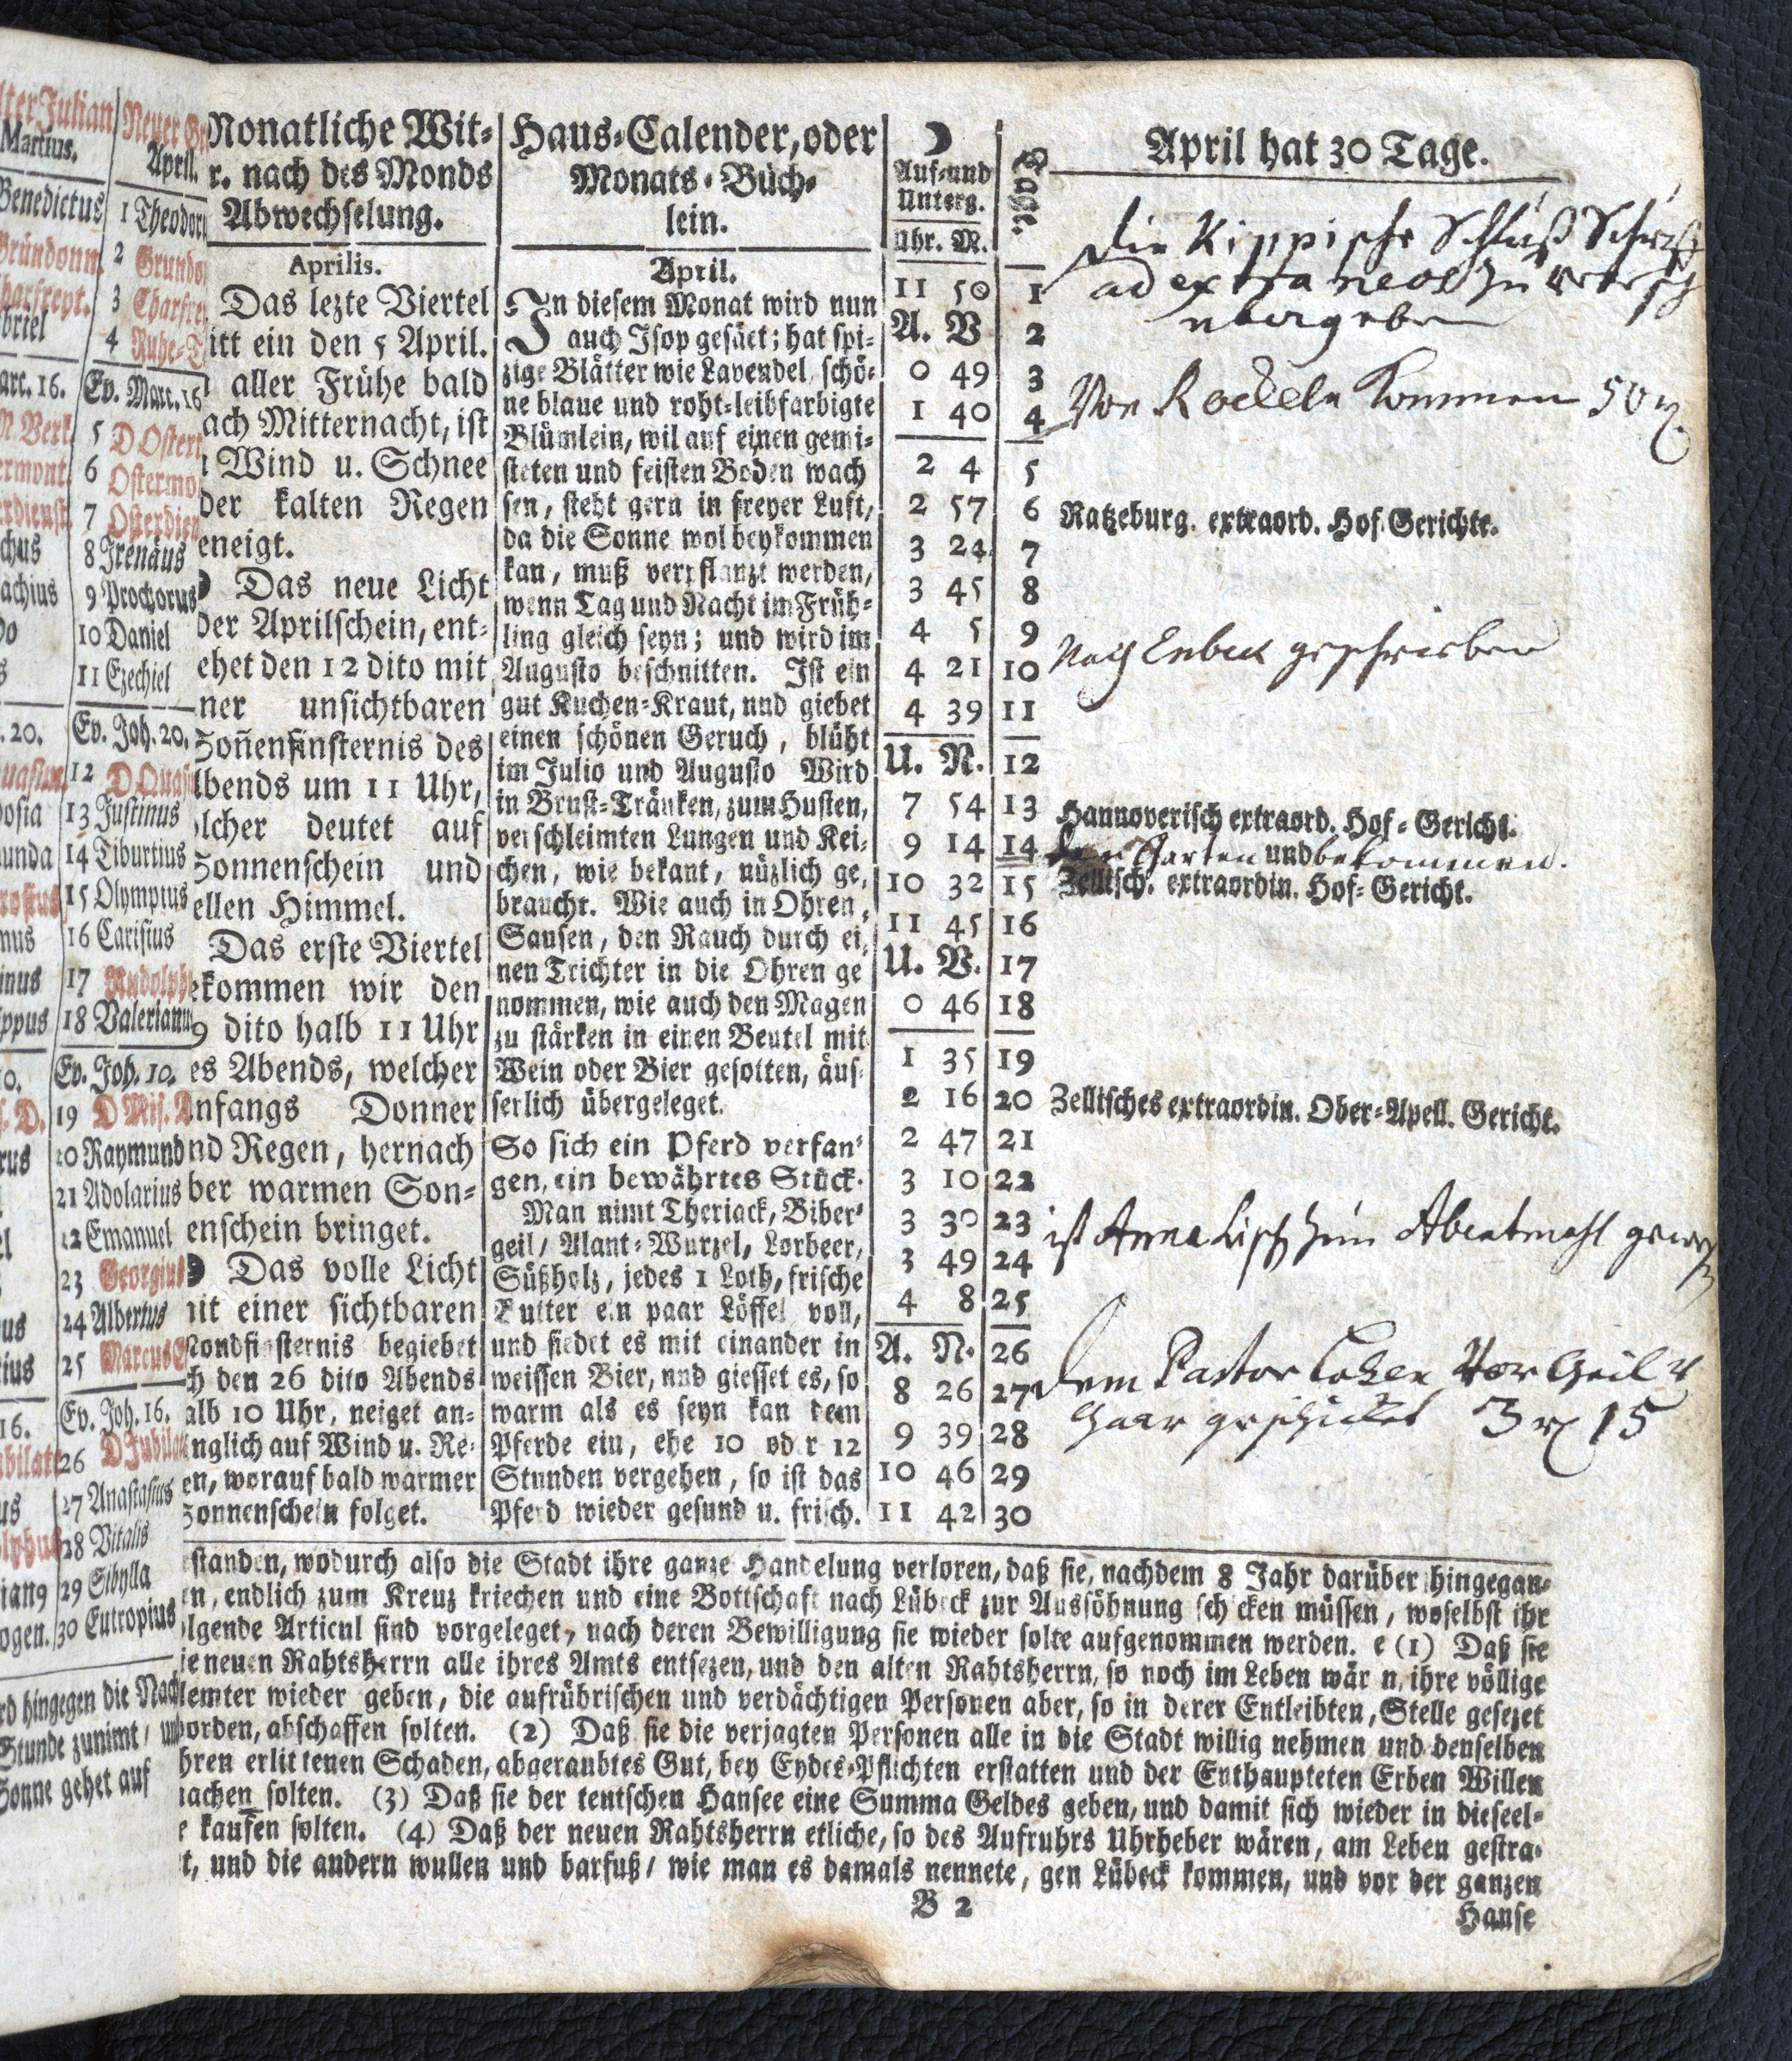 lter Julian
Martius.
Benedictus
Gründonn.
Charfreyt.
briel
arc. 16.
chus
achius
. 20.
osia
unda
mus
inus
ippus
rus
16.
Neuer Gr
April.
1 Theodor
2 Gründo
3 Charfre
4 Ruhe-T
Ev. Marc. 16
5 D Ostert
6 Ostermo
7 Osterdien
8 Irenäus
9 Prochorus
10 Daniel
11 Ezechiel
Ev. Joh. 20.
12 D Quasi
13 Justinus
14 Tiburtius
15 Olympius
16 Carisius
17 Rudolph
18 Valerianu
Ev. Joh. 10.
19 D Mis. D
20 Raymund
21 Adolarius
22 Emanuel
23 Georgius
24 Albertus
25 Marcus E
Ev. Joh. 16.
26 D Jubila
27 Anastasius
28 Vitalis
29 Sibylla
30 Eutropius
rd hingegen die Nach
Stunde zunimt / un
Sonne gehet auf
Monatliche Wit-
r. nach des Monds
Abwechselung.
Aprilis.
Das lezte Viertel
itt ein den 5 April.
aller Frühe bald
ach Mitternacht, ist
Wind u. Schnee
der kalten Regen
eneigt.
Das neue Licht
der Aprilschein, ent-
ehet den 12 dito mit
ner unsichtbaren
Soñenfinsternis des
Abends um 11 Uhr,
lcher deutet auf
Sonnenschein und
ellen Himmel.
Das erste Viertel
ekommen wir den
9 dito halb 11 Uhr
es Abends, welcher
nfangs Donner
nd Regen, hernach
ber warmen Son-
enschein bringet.
Das volle Licht
it einer sichtbaren
Mondfinsternis begiebet
ch den 26 dito Abends
alb 10 Uhr, neiget an-
nglich auf Wind u. Re-
en, worauf bald warmer
Sonnenschein folget.
Haus-Calender, oder
Monats-Büch-
lein.
April.
In diesem Monat wird nun
auch Isop gesäet; hat spi-
zige Blätter wie Lavendel, schö-
ne blaue und roht-leibfarbigte
Blümlein, wil auf einen gemi-
steten und feisten Boden wach
sen, steht gern in freyer Luft,
da die Sonne wol beykommen
kan, muß verpflanzt werden,
wenn Tag und Nacht im Früh-
ling gleich seyn; und wird im
Augusto beschnitten. Ist ein
gut Kuchen-Kraut, und giebet
einen schönen Geruch, blüht
im Julio und Augusto Wird
in Brust-Tränken, zum Husten,
verschleimten Lungen und Kei-
chen, wie bekant, nüzlich ge,
braucht. Wie auch in Ohren,
Sausen, den Rauch durch ei,
nen Trichter in die Ohren ge
nommen, wie auch den Magen
zu stärken in einen Beutel mit
Wein oder Bier gesotten, äus-
serlich übergeleget.
So sich ein Pferd verfan-
gen, ein bewährtes Stück.
Man nimt Theriack, Biber-
geil / Alant-Wurzel, Lorbeer,
Süßholz, jedes 1 Loth, frische
Butter ein paar Löffel voll,
und siedet es mit einander in
weissen Bier, und giesset es, so
warm als es seyn kan dem
Pferde ein, ehe 10 oder 12
Stunden vergehen, so ist das
Pferd wieder gesund u. frisch.
Auf-und
Unterg.
Uhr. M.
Tage.
11 50 1
A. V 2
0 49 3
1 40 4
2 4 5
2 57 6
3 24 7
3 45 8
4 5 9
4 21 10
4 39 11
U. N. 12
7 54 13
9 14 14
10 32 15
11 45 16
U. V. 17
0 46 18
1 35 19
2 16 20
2 47 21
3 10 22
3 30 23
3 49 24
4 8 25
A. N. 26
8 26 27
9 39 28
10 46 29
11 42 30
April hat 30 Tage.
Die Kippische Schluß Schrift
ad extraneos zu
übergeben
Von Rockeln kommen 50
Ratzeburg. extraord. Hof-Gerichte.
Nach Enbeck geschrieben
Hannoverisch extraord. Hof-Gericht.
den Garten und bekommen.
Zellisch. extraordin. Hof-Gericht.
Zellisches extraordin. Ober-Apell. Gericht.
ist Anna Lisch zum Abentmahl gewes
dem Pastor Vor
Haar geschicket 3 15
standen, wodurch also die Stadt ihre ganze Handelung verloren, daß sie, nachdem 8 Jahr darüber hingegan-
en, endlich zum Kreuz kriechen und eine Bottschaft nach Lübeck zur Aussöhnung schicken müssen, woselbst ihr
olgende Articul sind vorgeleget, nach deren Bewilligung sie wieder solte aufgenommen werden. e (1) Daß sie
ie neuen Rahtsherrn alle ihres Amts entsezen, und den alten Rahtsherrn, so noch im Leben wär n, ihre völlige
Aemter wieder geben, die aufrührischen und verdächtigen Personen aber, so in derer Entleibten, Stelle gesezet
worden, abschaffen solten. (2) Daß sie die verjagten Personen alle in die Stadt willig nehmen und denselben
ihren erlittenen Schaden, abgeraubtes Gut, bey Eydes-Pflichten erstatten und der Enthaupteten Erben Willen
machen solten. (3) Daß sie der teutschen Hansee eine Summa Geldes geben, und damit sich wieder in dieseel-
e kaufen solten. (4) Daß der neuen Rahtsherrn etliche, so des Aufruhrs Uhrheber wären, am Leben gestra-
t, und die andern wullen und barfuß / wie man es damals nennete, gen Lübeck kommen, und vor der ganzen
B 2
Hanse